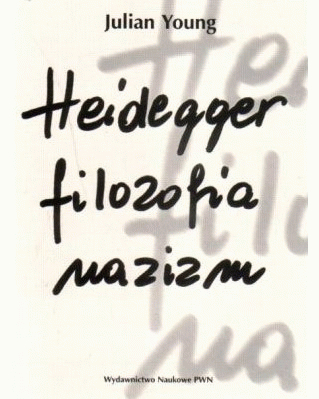 Julian Young
Heidegger
filozofia
nazizm
Wydawnictwo Naukowe PWN